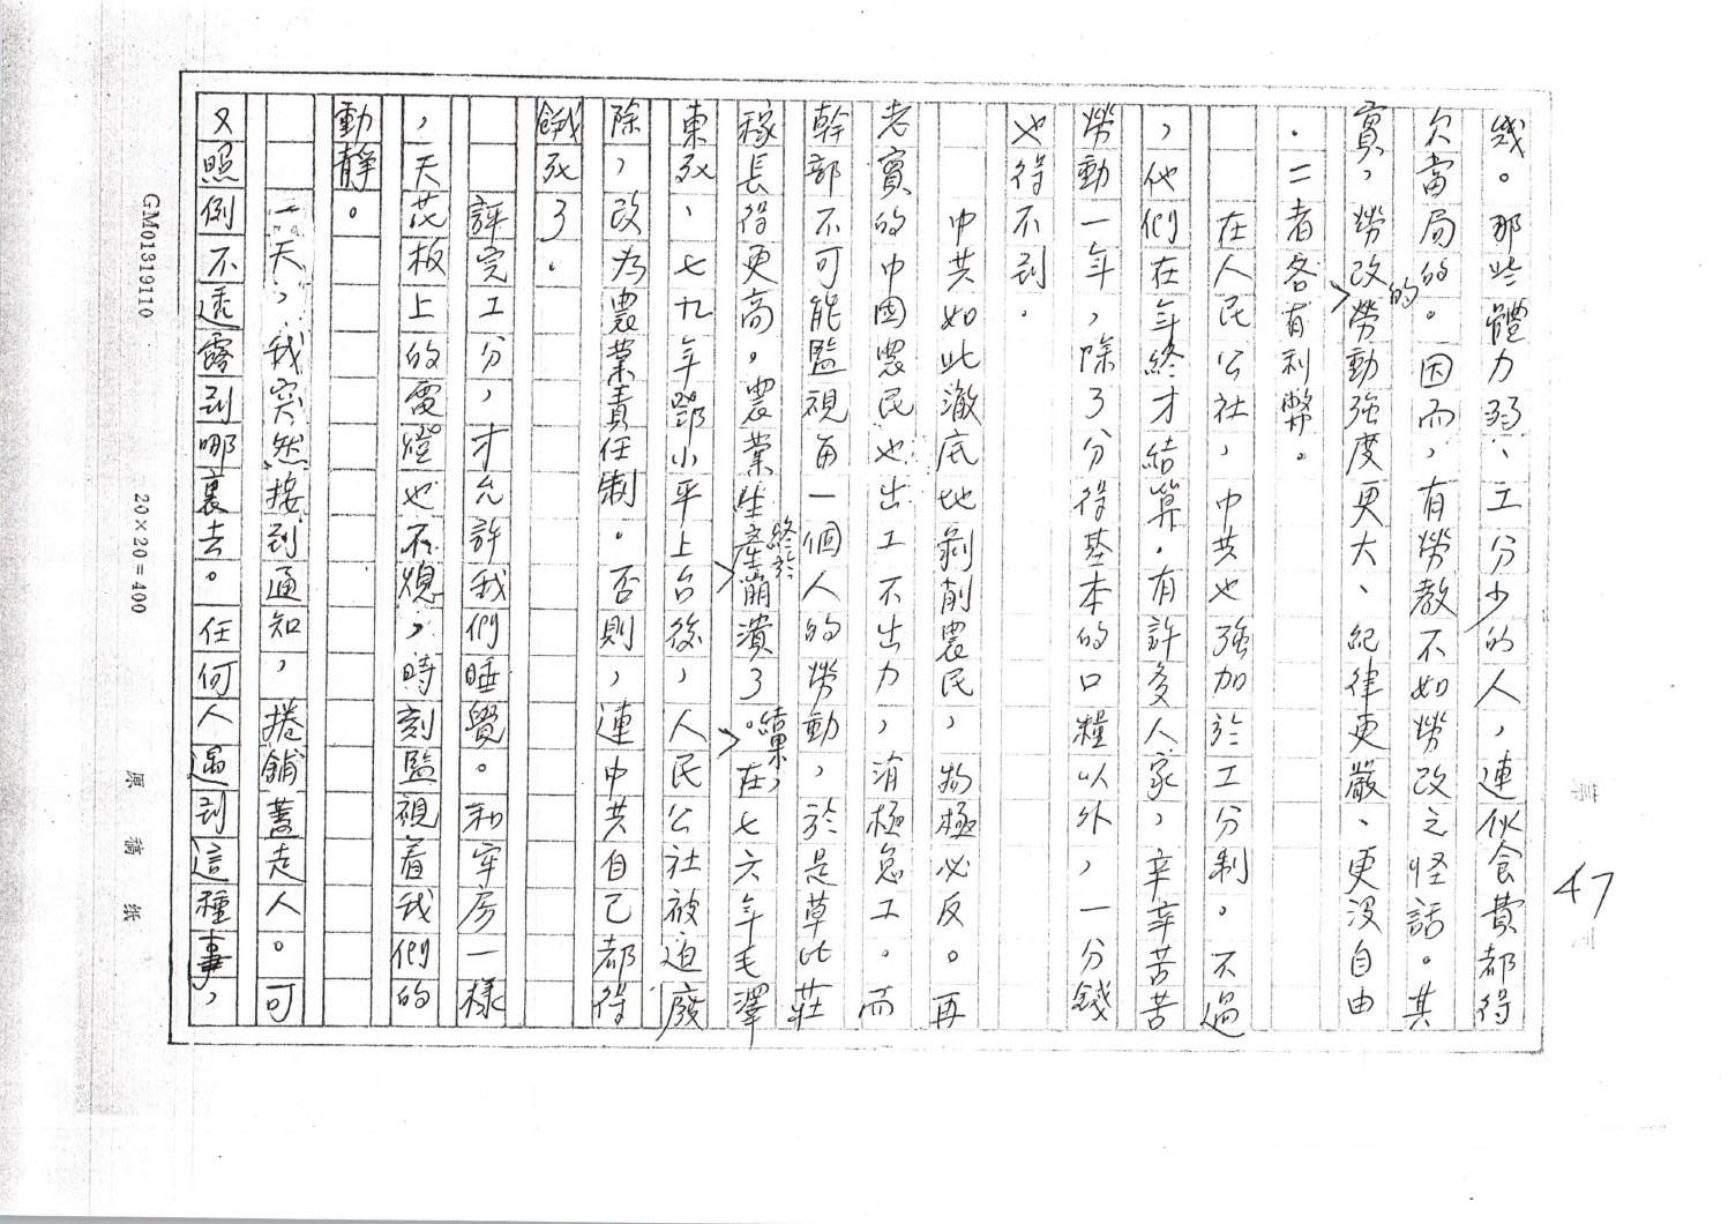 47
錢。那些體力弱、工分少的人，連伙食費都得
欠當局的。因而，有勞教不如勞改之怪話。其
實，勞改的勞動強度更大、紀律更嚴、更沒自由
。二者各有利幣。
在人民公社，中共也強加於工分制。不過
，他們在年終才結算。有許多人家，辛辛苦苦
勞動一年，除了分得基本的口糧以外，一分錢
也得不到。
中共如此澈底地剝削農民，物極必反。再
老實的中國農民也出工不出力，消極怠工。而
幹部不可能監視每一個人的勞動，於是草比莊
稼長得更高。農業生產終於崩潰了。結果，在七六年毛澤
東死、七九年鄧小平上台後，人民公社被迫廢
除，改為農業責任制。否則，連中共自己都得
餓死了。
評完工分，才允許我們睡覺。和牢房一樣
，天花板上的電燈也不熄，時刻監視着我們的
動靜。
一天，我突然接到通知，捲鋪蓋走人。可
又照例不透露到哪裏去。任何人遇到這種事，
GM01319110
20×20=400
原稿紙